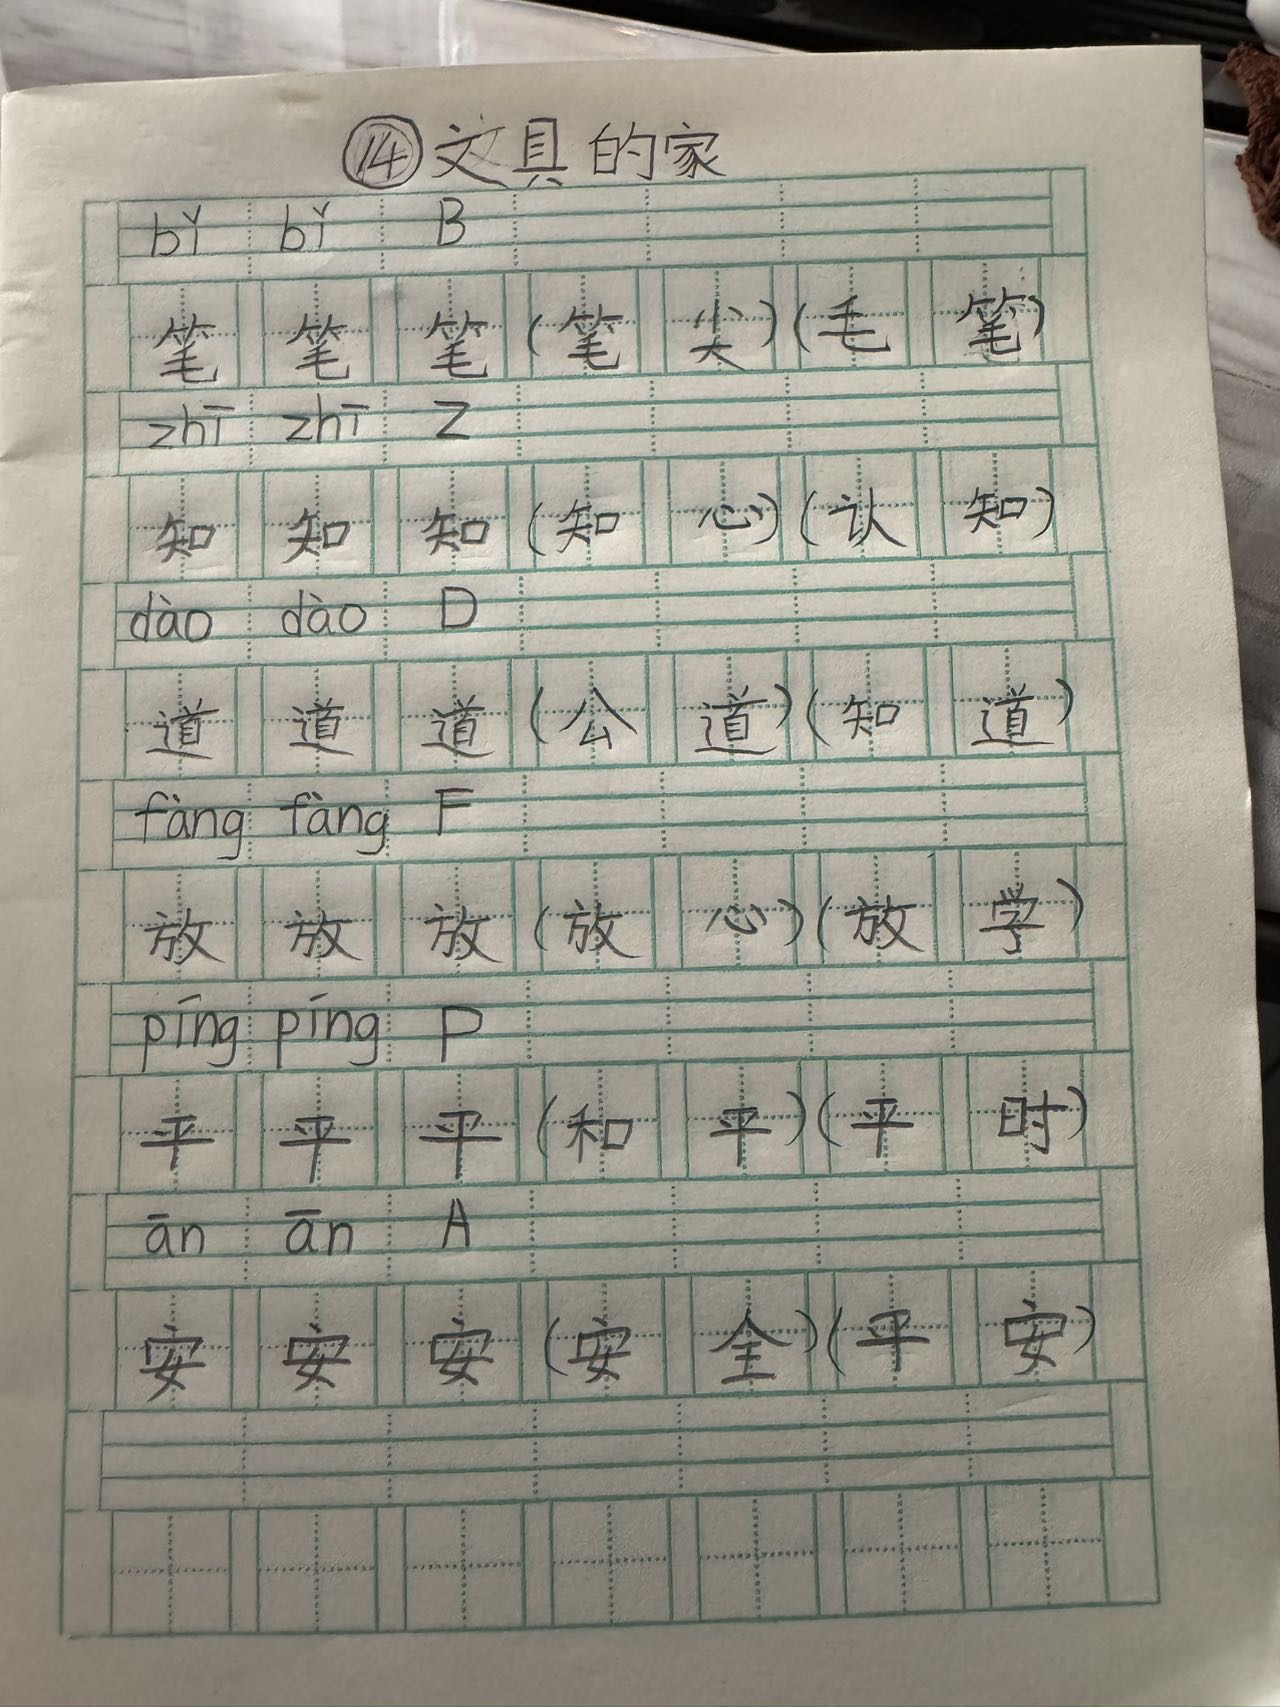 ⑭文具的家
bǐ bǐ B
笔 笔 笔 (笔 尖) (毛 笔)
zhī zhī Z
知 知 知 (知 心) (认 知)
dào dào D
道 道 道 (公 道) (知 道)
fàng fàng F
放 放 放 (放 心) (放 学)
píng píng P
平 平 平 (和 平) (平 时)
ān ān A
安 安 安 (安 全) (平 安)